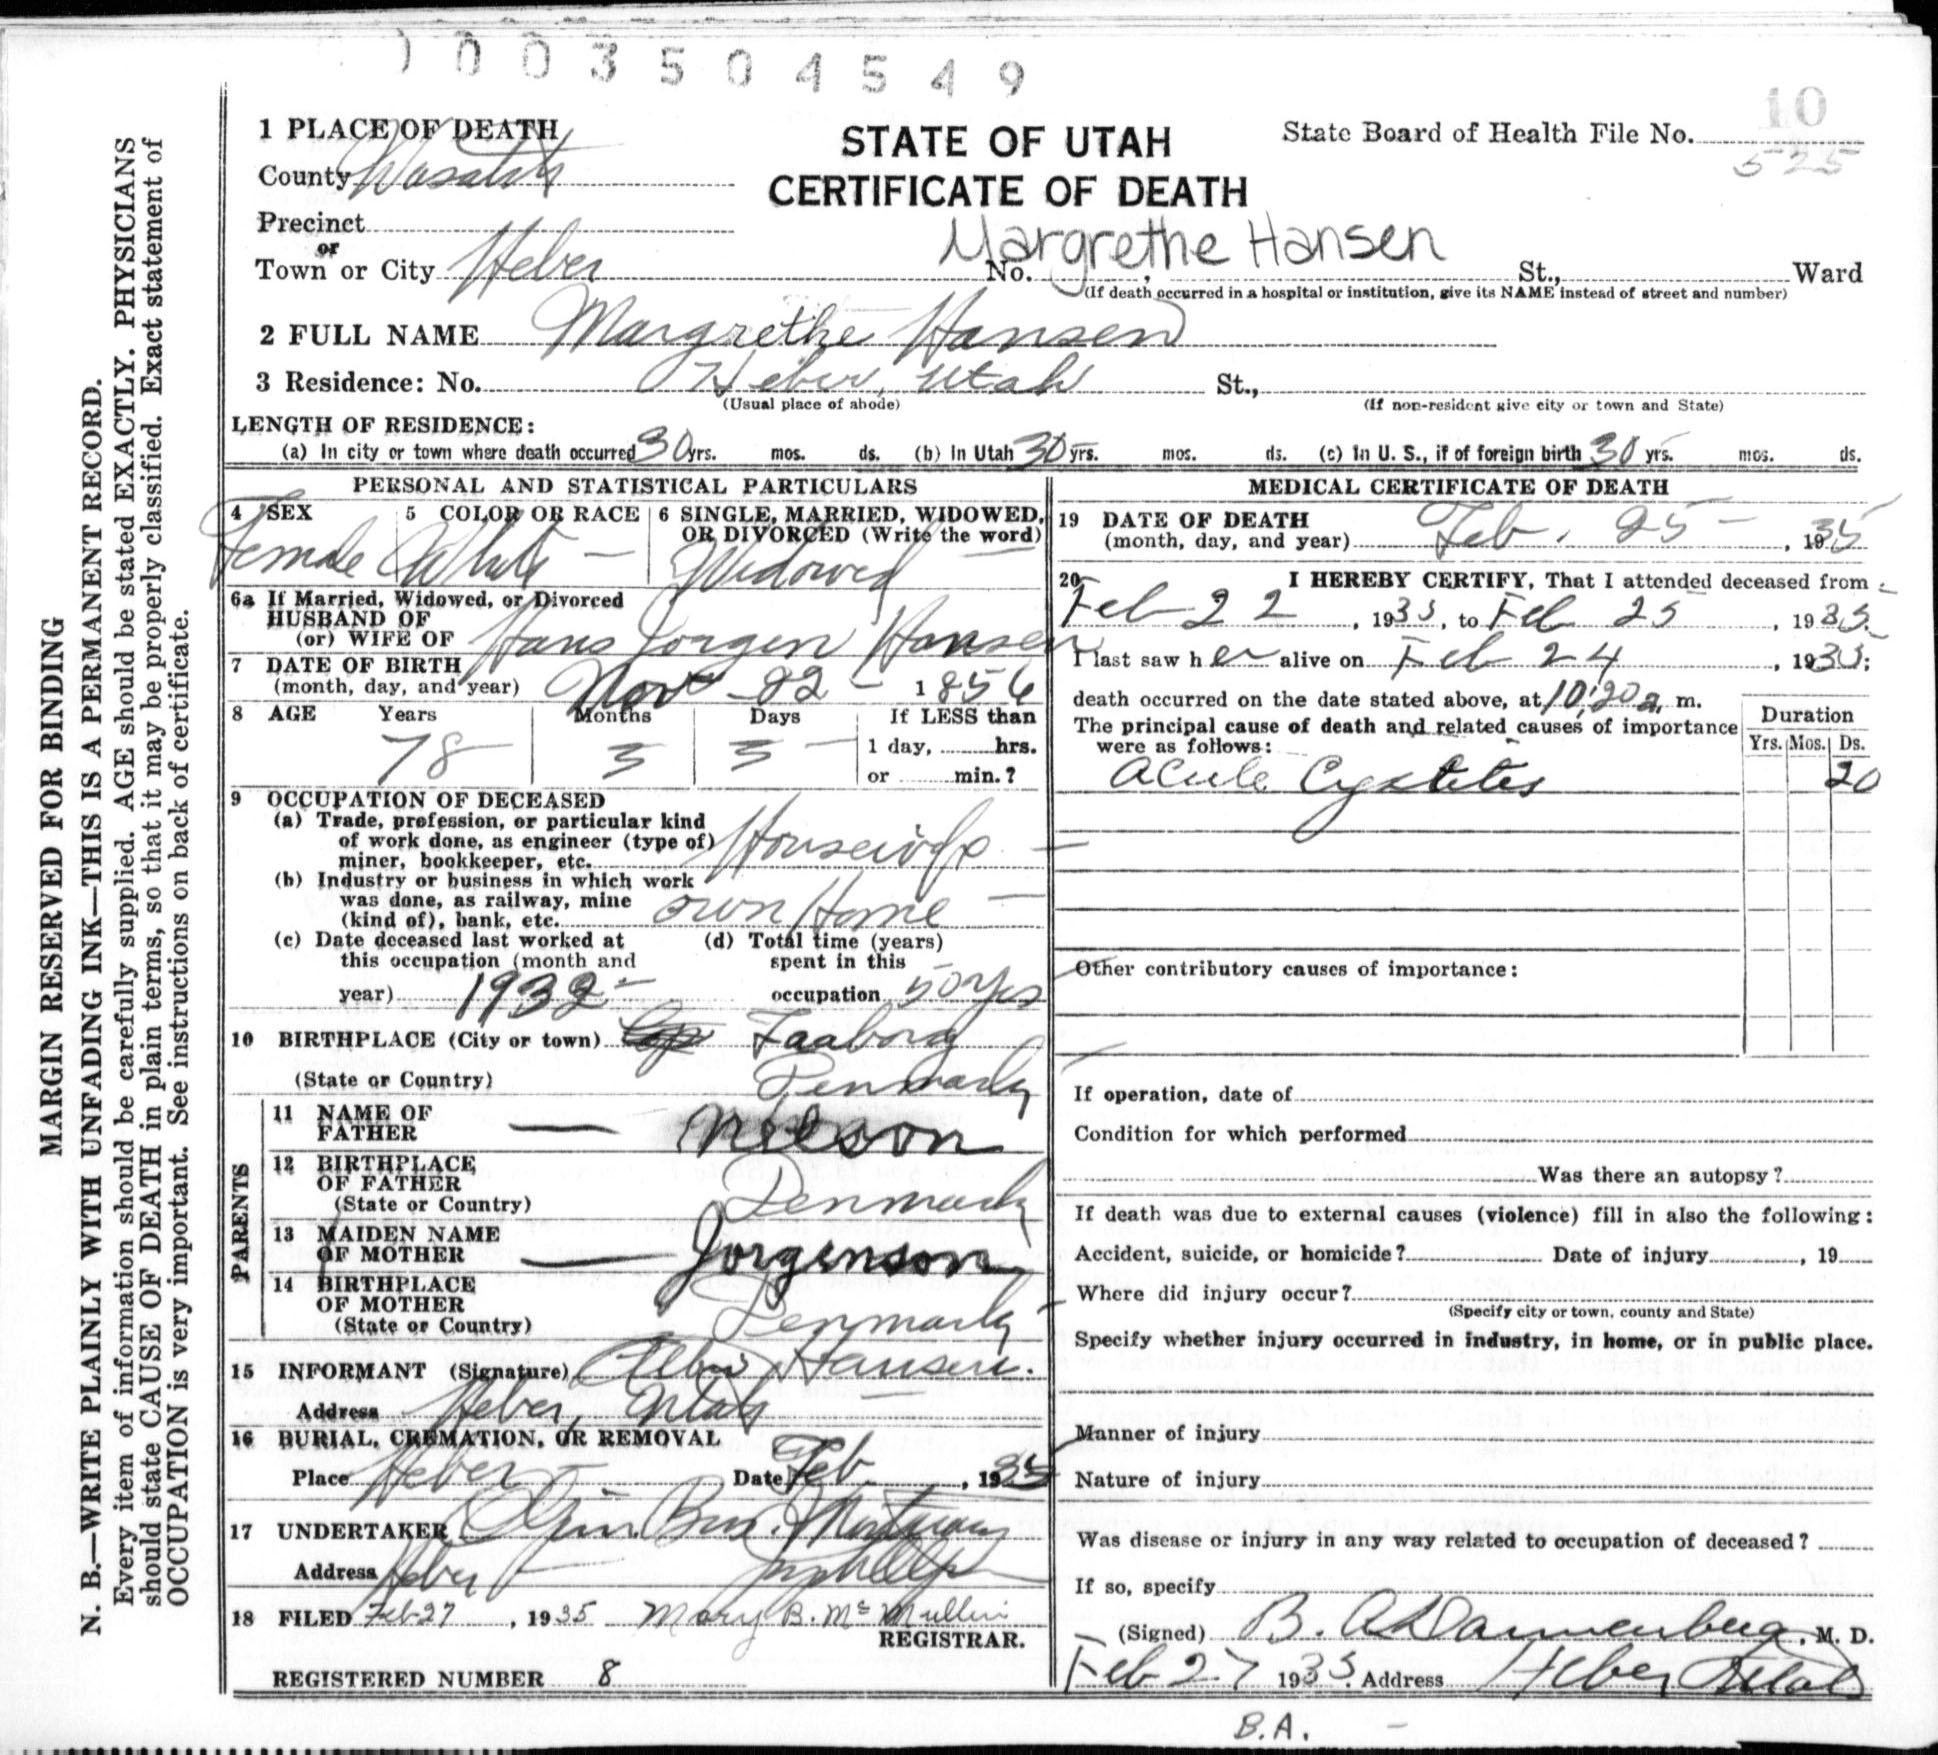 1003504549
10
1 PLACE OF DEATH
STATE OF UTAH
State Board of Health File No.
525
County Wasatch
CERTIFICATE OF DEATH
Precinct
or
Margrethe Hansen
Town or City Heber No. , St., Ward
(If death occurred in a hospital or institution, give its NAME instead of street and number)
2 FULL NAME Margrethe Hansen
3 Residence: No. Heber, Utah St.,
(Usual place of abode) (If non-resident give city or town and State)
LENGTH OF RESIDENCE:
(a) In city or town where death occurred 30 yrs. mos. ds. (b) In Utah 30 yrs. mos. ds. (c) In U. S., if of foreign birth 30 yrs. mos. ds.
PERSONAL AND STATISTICAL PARTICULARS
4 SEX 5 COLOR OR RACE 6 SINGLE, MARRIED, WIDOWED,
OR DIVORCED (Write the word)
Female White — Widowed
6a If Married, Widowed, or Divorced
HUSBAND OF
(or) WIFE OF Hans Jorgen Hansen
7 DATE OF BIRTH
(month, day, and year) Nov - 22 - 1856
8 AGE Years Months Days If LESS than
78 3 3 — 1 day, hrs.
or min.?
9 OCCUPATION OF DECEASED
(a) Trade, profession, or particular kind
of work done, as engineer (type of)
miner, bookkeeper, etc. Housewife —
(b) Industry or business in which work
was done, as railway, mine
(kind of), bank, etc. own Home —
(c) Date deceased last worked at (d) Total time (years)
this occupation (month and spent in this
year) 1932 - occupation 50 yrs
10 BIRTHPLACE (City or town) Faaborg
(State or Country) Denmark
PARENTS
11 NAME OF
FATHER — Nielson
12 BIRTHPLACE
OF FATHER
(State or Country) Denmark
13 MAIDEN NAME
OF MOTHER — Jorgenson
14 BIRTHPLACE
OF MOTHER
(State or Country) Denmark
15 INFORMANT (Signature) Hansen.
Address Heber, Utah —
16 BURIAL, CREMATION, OR REMOVAL
Place Heber — Date Feb , 1935
17 UNDERTAKER Olpin Bros. Mortuary
Address Heber
18 FILED Feb 27 , 1935 Mary B. McMullin
REGISTRAR.
REGISTERED NUMBER 8
MEDICAL CERTIFICATE OF DEATH
19 DATE OF DEATH
(month, day, and year) Feb. 25 - , 1935
20 I HEREBY CERTIFY, That I attended deceased from
Feb 22 , 1935, to Feb 25 , 1935.
I last saw her alive on Feb 24 , 1935;
death occurred on the date stated above, at 10:20 a. m.
The principal cause of death and related causes of importance
were as follows:
Duration
Yrs. Mos. Ds.
Acute Cystitis 20
Other contributory causes of importance:
If operation, date of
Condition for which performed
Was there an autopsy?
If death was due to external causes (violence) fill in also the following:
Accident, suicide, or homicide? Date of injury , 19
Where did injury occur?
(Specify city or town, county and State)
Specify whether injury occurred in industry, in home, or in public place.
Manner of injury
Nature of injury
Was disease or injury in any way related to occupation of deceased?
If so, specify
(Signed) B. A. Dannenberg, M. D.
Feb 27 1935. Address Heber Utah
B.A. -
MARGIN RESERVED FOR BINDING
N. B.—WRITE PLAINLY WITH UNFADING INK—THIS IS A PERMANENT RECORD.
Every item of information should be carefully supplied. AGE should be stated EXACTLY. PHYSICIANS
should state CAUSE OF DEATH in plain terms, so that it may be properly classified. Exact statement of
OCCUPATION is very important. See instructions on back of certificate.